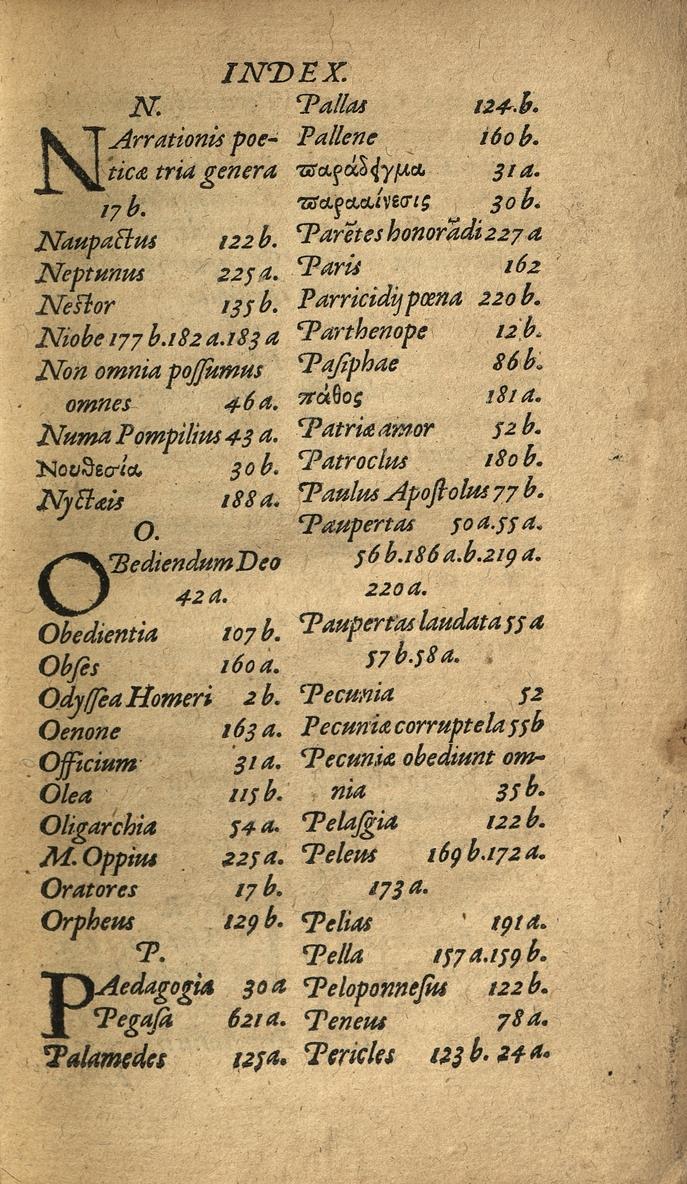 INDEX.
N.
NArrationis poe-
ticæ tria genera
17 b.
Naupactus 122 b.
Neptunus 225 a.
Nestor 135 b.
Niobe 177 b.182 a.183 a
Non omnia poſſumus
omnes 46 a.
Numa Pompilius 43 a.
Νουθεσία 30 b.
Nyctæis 188 a.
O.
OBediendum Deo
42 a.
Obedientia 107 b.
Obſes 160 a.
Odyſſea Homeri 2 b.
Oenone 163 a.
Officium 31 a.
Olea 115 b.
Oligarchia 54 a.
M. Oppius 225 a.
Oratores 17 b.
Orpheus 129 b.
P.
PAedagogia 30 a
Pegaſa 621 a.
Palamedes 125 a.
Pallas 124.b.
Pallene 160 b.
παράδειγμα 31 a.
παρααίνεσις 30 b.
Parẽtes honorãdi 227 a
Paris 162
Parricidij pœna 220 b.
Parthenope 12 b.
Paſiphae 86 b.
πάθος 181 a.
Patriæ amor 52 b.
Patroclus 180 b.
Paulus Apoſtolus 77 b.
Paupertas 50 a.55 a.
56 b.186 a.b.219 a.
220 a.
Paupertas laudata 55 a
57 b.58 a.
Pecunia 52
Pecuniæ corruptela 55b
Pecuniæ obediunt om-
nia 35 b.
Pelaſgia 122 b.
Peleus 169 b.172 a.
173 a.
Pelias 191 a.
Pella 157 a.159 b.
Peloponneſus 122 b.
Peneus 78 a.
Pericles 123 b. 24 a.